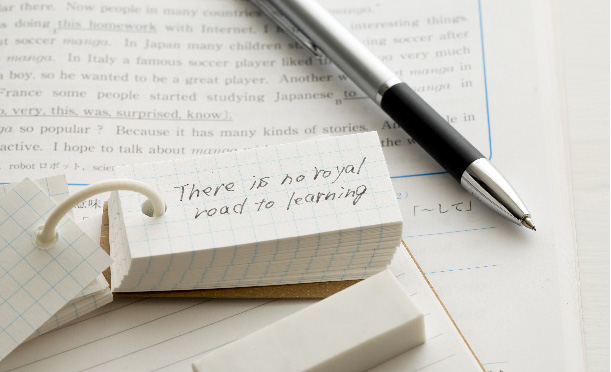 ar there. Now people in many countries manga."
as doing this homework with Internet, I interesting things.
at soccer manga. In Japan many children soccer after
manga. In Italy a famous soccer player liked very much
a boy, so he wanted to be a great player. Another manga in
France some people started studying Japanese to in
o, very, this, was, surprised, know].
ga so popular? Because it has many kinds of stories. in
active. I hope to talk about the
robot ロボット,
意味
There is no royal
road to learning
「～して」